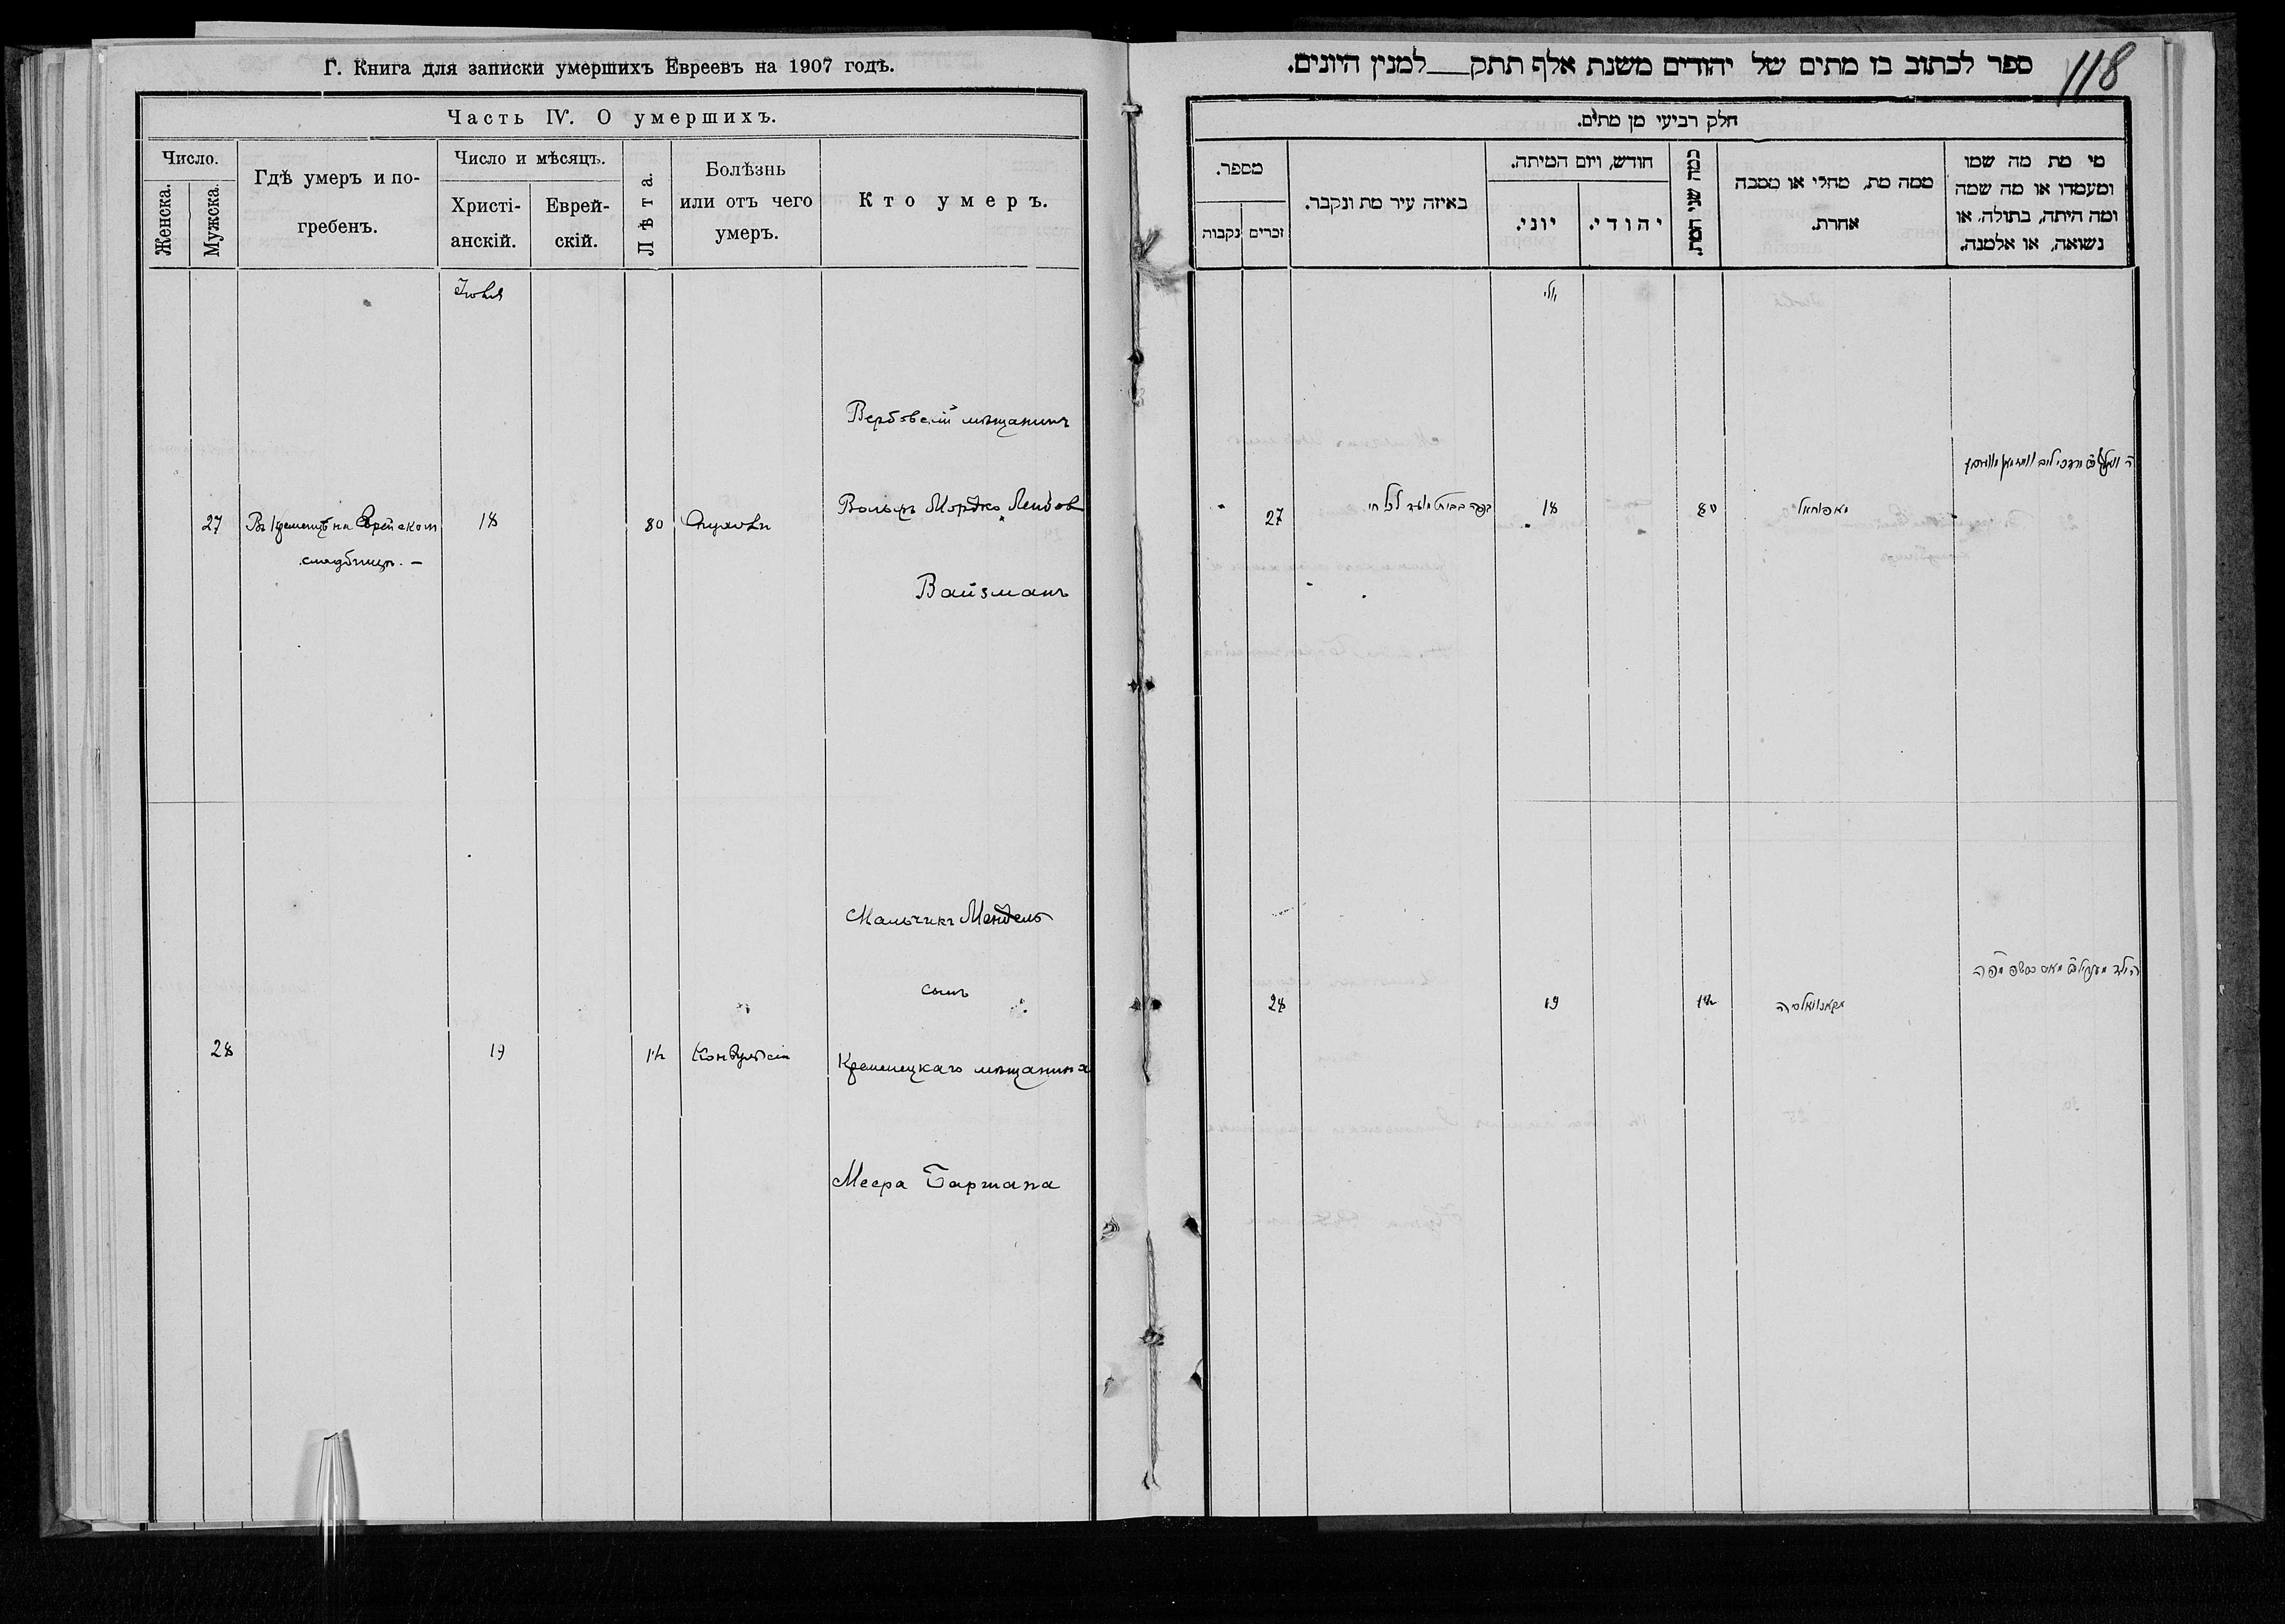 Г. Книга для записки умершихъ Евреевъ на 1907 годъ.
Часть IV. О умершихъ.
Число.
Женска.
Мужска.
Гдѣ умеръ и по-
гребенъ.
Число и мѣсяцъ.
Христі-
анскій.
Еврей-
скій.
Лѣта.
Болѣзнь
или отъ чего
умеръ.
Кто умеръ.
Іюля
Вербовскій мѣщанинъ
27 Въ Кременцѣ на Еврейском 18 80 Опухоли Вольф Мордко Лейбов
кладбищѣ. –
Вайзманъ
Мальчикъ Мендель
сынъ
28 19 1½ Конвульсіи Кременецкаго мѣщанина
Меера Бармана
118
ספר לכתוב בו מתים של יהודים משנת אלף תתק למנין היונים.
חלק רביעי מן מתים.
מספר.
נקבות
זכרים
באיזה עיר מת ונקבר.
חודש, ויום המיתה.
יוני.
יהודי.
כמה שני המת.
ממה מת, מחלי או מסבה
אחרת.
מי מת מה שמו
ומעמדו או מה שמה
ומה היתה, בתולה, או
נשואה, או אלמנה.
יולי
27 18 80
28 19 1½